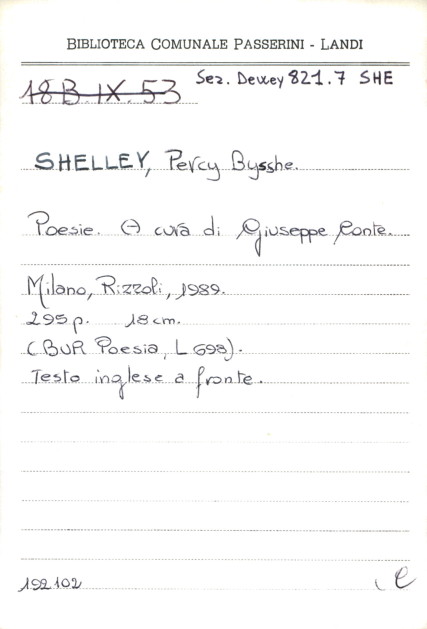 BIBLIOTECA COMUNALE PASSERINI - LANDI
18B.IX.53 Sez. Dewey 821.7 SHE
SHELLEY, Percy Bysshe.
Poesie. A cura di Giuseppe Conte.
Milano, Rizzoli, 1989.
295 p. 18 cm.
(BUR Poesia, L 693).
Testo inglese a fronte.
192102